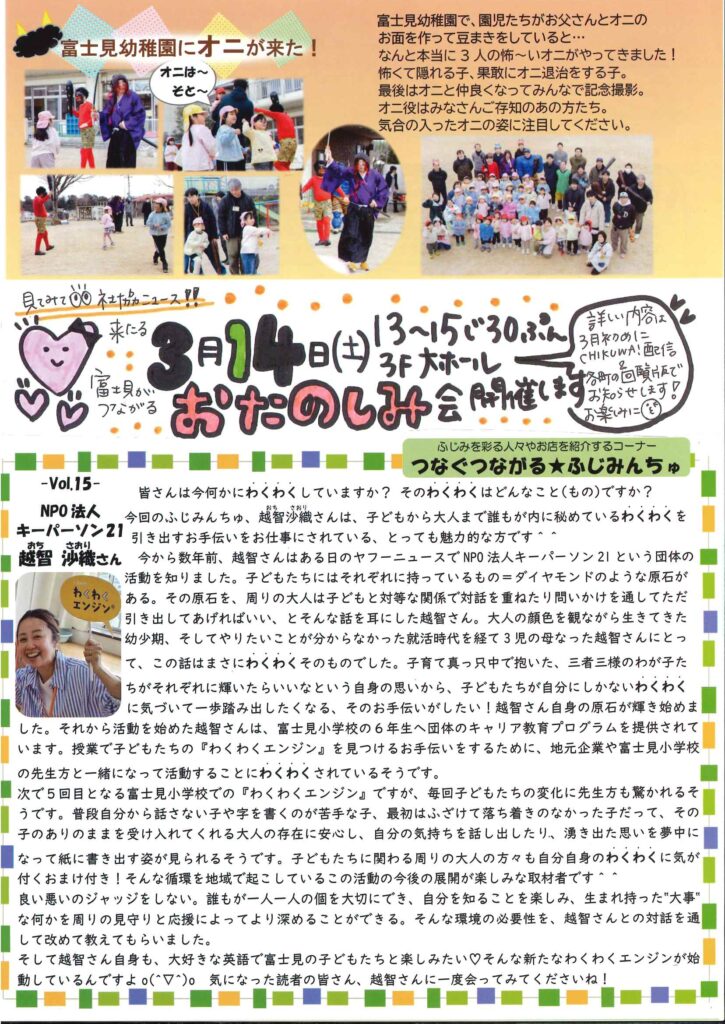 富士見幼稚園にオニが来た！
オニは～
そと～
富士見幼稚園で、園児たちがお父さんとオニの
お面を作って豆まきをしていると…
なんと本当に３人の怖～いオニがやってきました！
怖くて隠れる子、果敢にオニ退治をする子。
最後はオニと仲良くなってみんなで記念撮影。
オニ役はみなさんご存知のあの方たち。
気合の入ったオニの姿に注目してください。
見てみて 社協ニュース!!
来たる
3月14日(土)
13～15じ30ぷん
3F 大ホール
富士見が
つながる
おたのしみ会 開催します
詳しい内容は
3月初めに
CHIKUWA!配信
&
各町の回覧版で
お知らせします!
お楽しみに
ふじみを彩る人々やお店を紹介するコーナー
つなぐつながる★ふじみんちゅ
-Vol.15-
NPO法人
キーパーソン21
越智 沙織さん
おち さおり
わくわく
エンジン®
皆さんは今何かにわくわくしていますか？ そのわくわくはどんなこと(もの)ですか？
おち さおり
今回のふじみんちゅ、越智沙織さんは、子どもから大人まで誰もが内に秘めているわくわくを
引き出すお手伝いをお仕事にされている、とっても魅力的な方です＾＾
今から数年前、越智さんはある日のヤフーニュースでNPO法人キーパーソン21という団体の
活動を知りました。子どもたちにはそれぞれに持っているもの＝ダイヤモンドのような原石が
ある。その原石を、周りの大人は子どもと対等な関係で対話を重ねたり問いかけを通してただ
引き出してあげればいい、とそんな話を耳にした越智さん。大人の顔色を観ながら生きてきた
幼少期、そしてやりたいことが分からなかった就活時代を経て３児の母なった越智さんにとっ
て、この話はまさにわくわくそのものでした。子育て真っ只中で抱いた、三者三様のわが子た
ちがそれぞれに輝いたらいいなという自身の思いから、子どもたちが自分にしかないわくわく
に気づいて一歩踏み出したくなる、そのお手伝いがしたい！越智さん自身の原石が輝き始めま
した。それから活動を始めた越智さんは、富士見小学校の６年生へ団体のキャリア教育プログラムを提供されて
います。授業で子どもたちの『わくわくエンジン』を見つけるお手伝いをするために、地元企業や富士見小学校
の先生方と一緒になって活動することにわくわくされているそうです。
次で５回目となる富士見小学校での『わくわくエンジン』ですが、毎回子どもたちの変化に先生方も驚かれるそ
うです。普段自分から話さない子や字を書くのが苦手な子、最初はふざけて落ち着きのなかった子だって、その
子のありのままを受け入れてくれる大人の存在に安心し、自分の気持ちを話し出したり、湧き出た思いを夢中に
なって紙に書き出す姿が見られるそうです。子どもたちに関わる周りの大人の方々も自分自身のわくわくに気が
付くおまけ付き！そんな循環を地域で起こしているこの活動の今後の展開が楽しみな取材者です＾＾
良い悪いのジャッジをしない。誰もが一人一人の個を大切にでき、自分を知ることを楽しみ、生まれ持った“大事“
な何かを周りの見守りと応援によってより深めることができる。そんな環境の必要性を、越智さんとの対話を通
して改めて教えてもらいました。
そして越智さん自身も、大好きな英語で富士見の子どもたちと楽しみたい♡そんな新たなわくわくエンジンが始
動しているんですよo(^▽^)o　気になった読者の皆さん、越智さんに一度会ってみてくださいね！